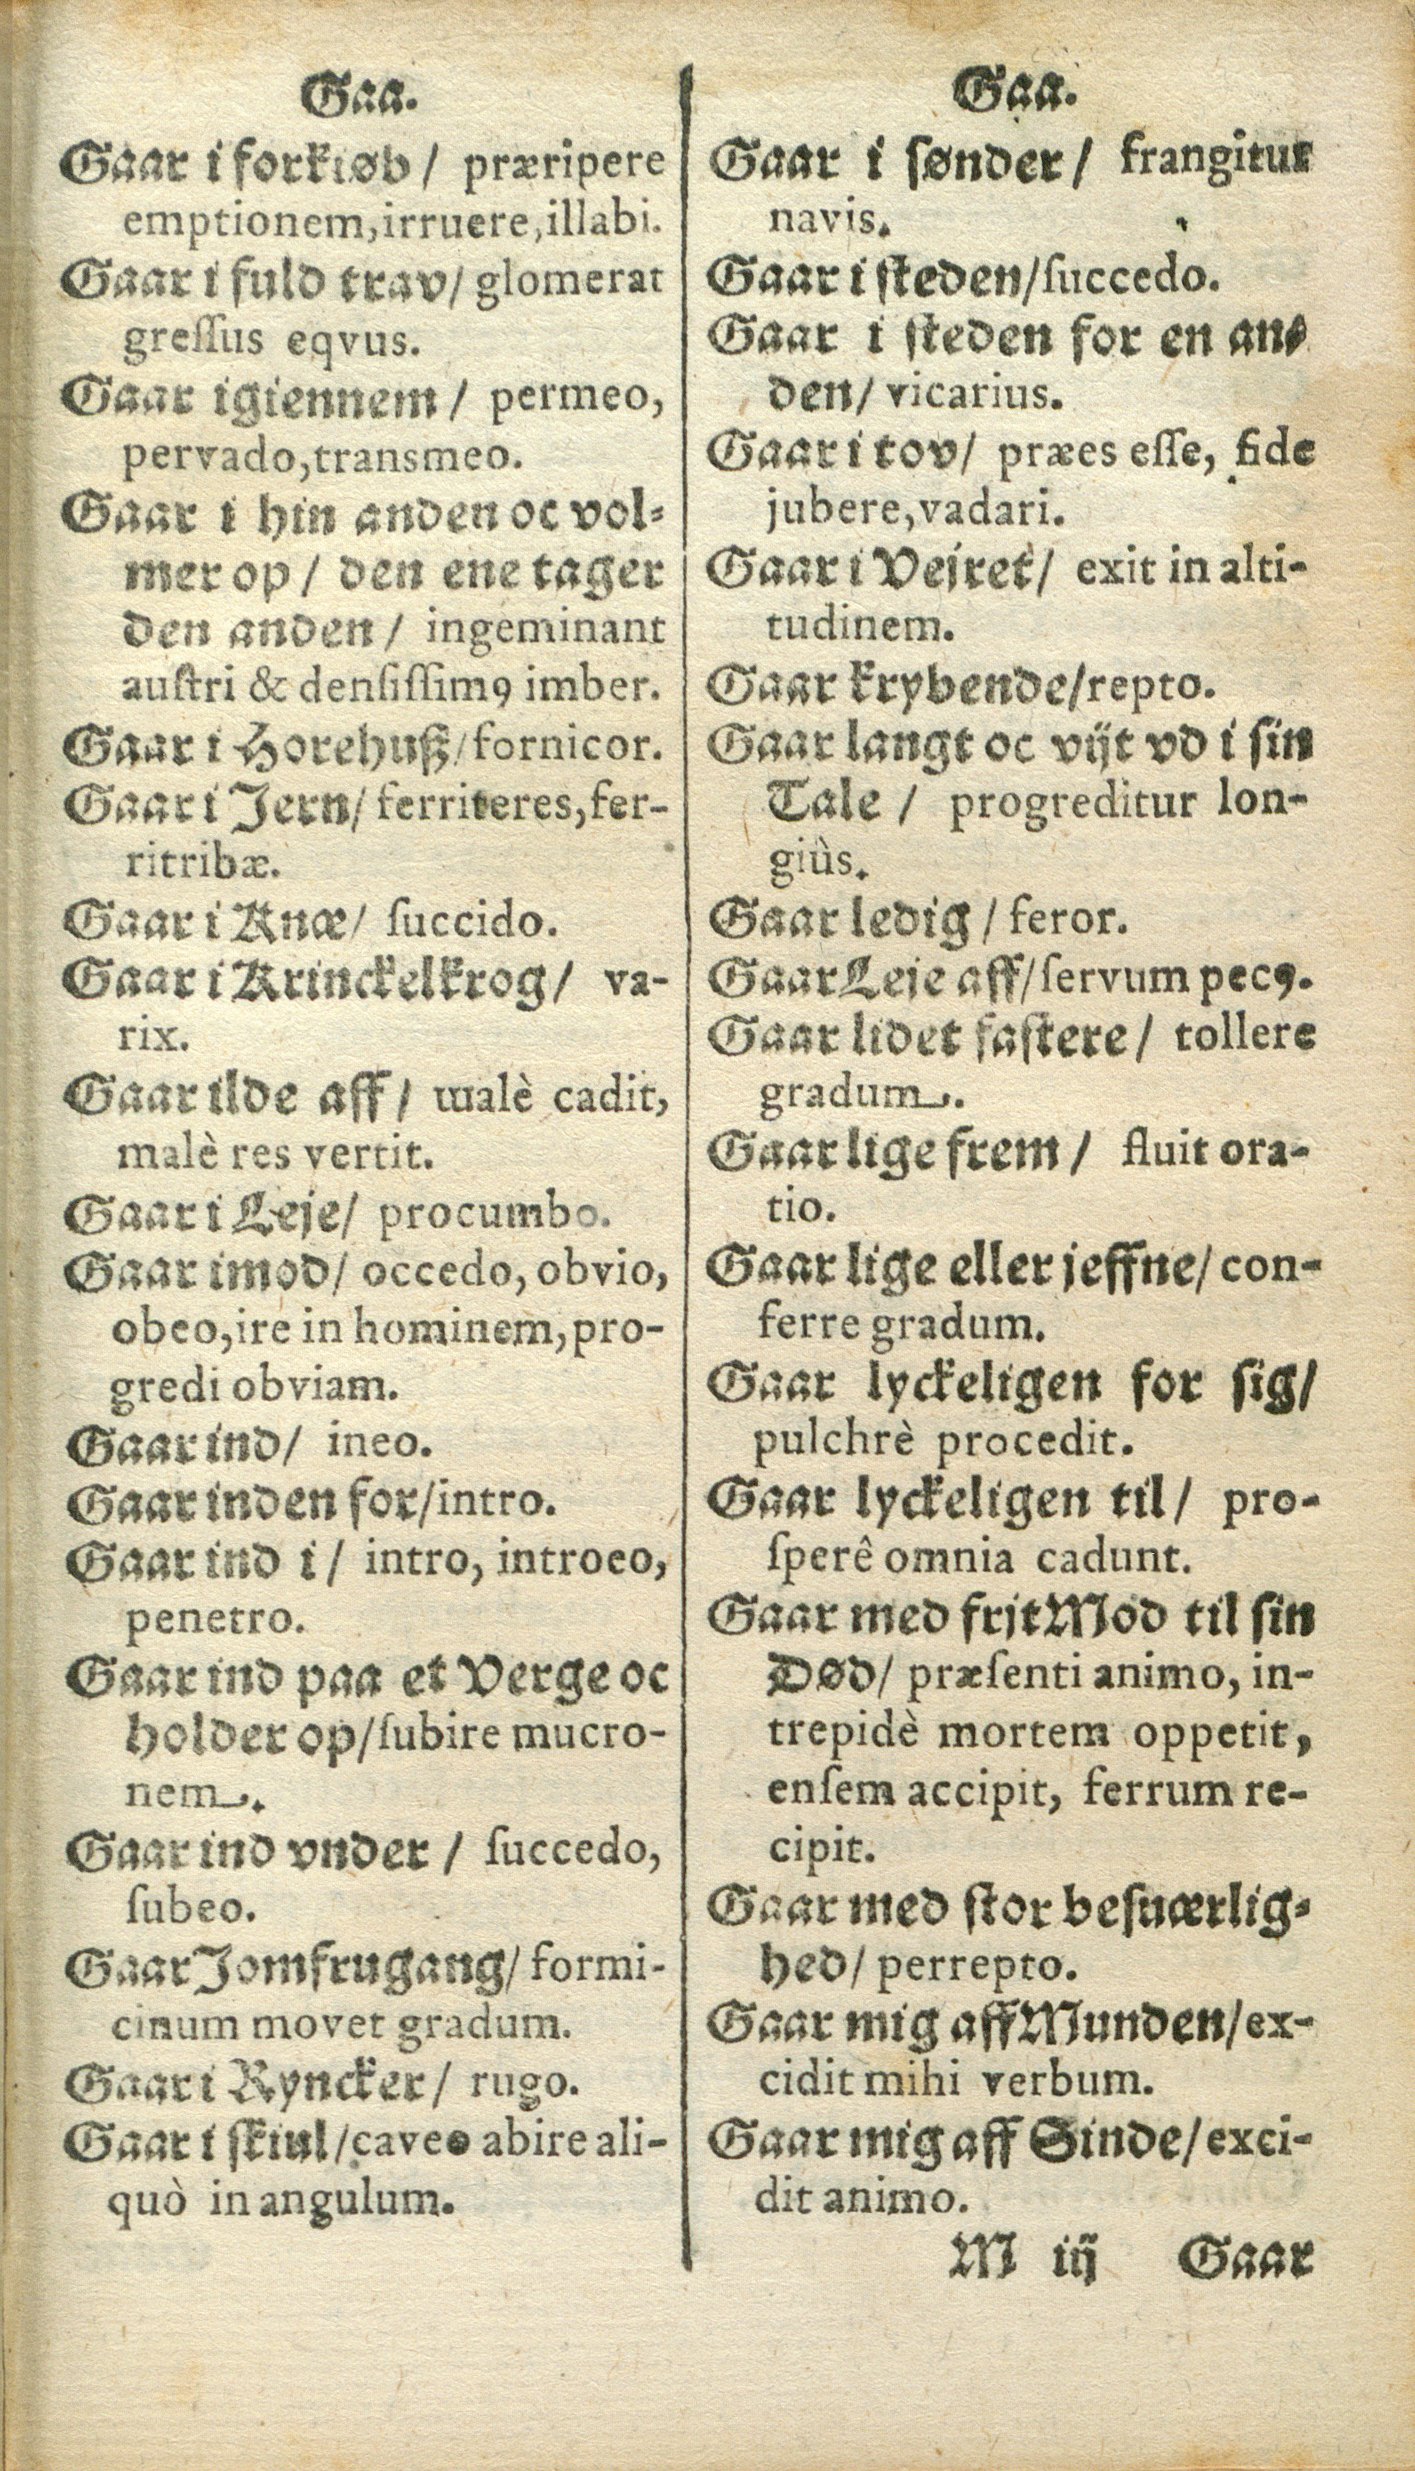 Gaa.
Gaar i forkiøb / præripere
emptionem, irruere, illabi.
Gaar i fuld trav / glomerat
greſſus eqvus.
Gaar igiennem / permeo,
pervado, transmeo.
Gaar i hin anden oc vol-
mer op / den ene tager
den anden / ingeminant
auſtri & denſiſſimꝰ imber.
Gaar i Horehuß / fornicor.
Gaar i Jern / ferriteres, fer-
ritribæ.
Gaar i Knæ / ſuccido.
Gaar i Krinckelkrog / va-
rix.
Gaar ilde aff / malè cadit,
malè res vertit.
Gaar i Leje / procumbo.
Gaar imod / occedo, obvio,
obeo, ire in hominem, pro-
gredi obviam.
Gaar ind / ineo.
Gaar inden for / intro.
Gaar ind i / intro, introeo,
penetro.
Gaar ind paa et Verge oc
holder op / ſubire mucro-
nem.
Gaar ind vnder / ſuccedo,
ſubeo.
Gaar Jomfrugang / formi-
cinum movet gradum.
Gaar i Ryncker / rugo.
Gaar i ſkiul / caveo abire ali-
quò in angulum.
Gaa.
Gaar i ſønder / frangitur
navis.
Gaar i ſteden / ſuccedo.
Gaar i ſteden for en an-
den / vicarius.
Gaar i tov / præes eſſe, fide
jubere, vadari.
Gaar i Vejret / exit in alti-
tudinem.
Gaar krybende / repto.
Gaar langt oc vijt vd i ſin
Tale / progreditur lon-
giùs.
Gaar ledig / feror.
Gaar Leje aff / ſervum pecꝰ.
Gaar lidet faſtere / tollere
gradum.
Gaar lige frem / fluit ora-
tio.
Gaar lige eller jeffne / con-
ferre gradum.
Gaar lyckeligen for ſig /
pulchrè procedit.
Gaar lyckeligen til / pro-
ſperê omnia cadunt.
Gaar med frjt Mod til ſin
Død / præſenti animo, in-
trepidè mortem oppetit,
enſem accipit, ferrum re-
cipit.
Gaar med ſtor beſuærlig-
hed / perrepto.
Gaar mig aff Munden / ex-
cidit mihi verbum.
Gaar mig aff Sinde / exci-
dit animo.
M iij Gaar